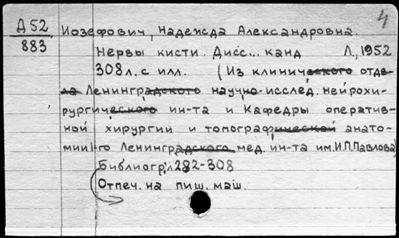 4
Д52
883
Иозефович, Надежда Александровна.
Нервы кисти. Дисс... канд Л., 1952
308 л. с илл. (Из клинического отде-
ла Ленинградского научно-исслед. нейрохи-
рургического ин-та и Кафедры оператив-
ной хирургии и топографической анато-
мии 1го Ленинградского мед. ин-та им. И.П. Павлова)
Библиогр. л. 282-308
Отпеч. на пиш. маш.